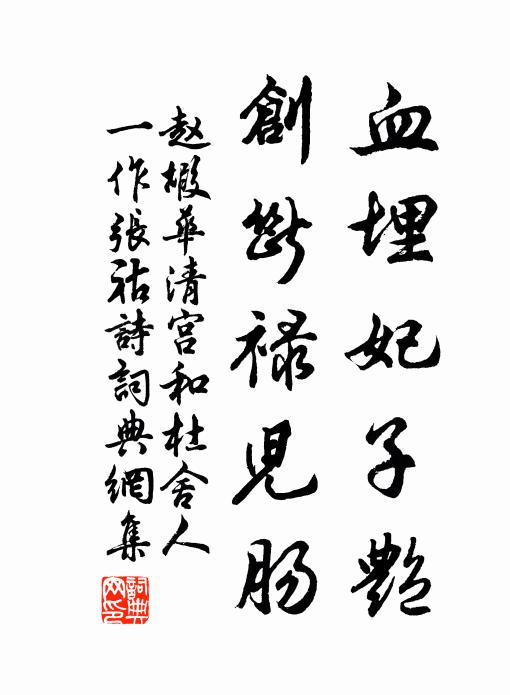 血埋妃子艷
創斷禄兒肠
赵嘏華清宫和杜舍人
一作張祜詩詞典網集
詞典网印